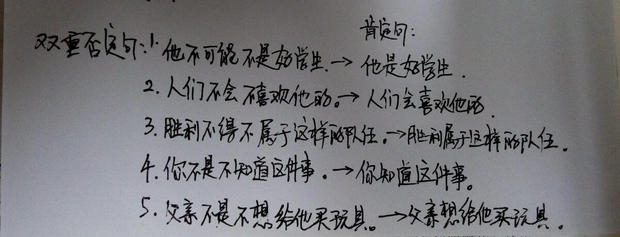 肯定句:
双重否定句:1.他不可能不是好学生.→他是好学生.
2.人们不会不喜欢他的。→人们会喜欢他的.
3.胜利不得不属于这样的队伍。→胜利属于这样的队伍。
4.你不是不知道这件事。→你知道这件事。
5.父亲不是不想给他买玩具。→父亲想给他买玩具。